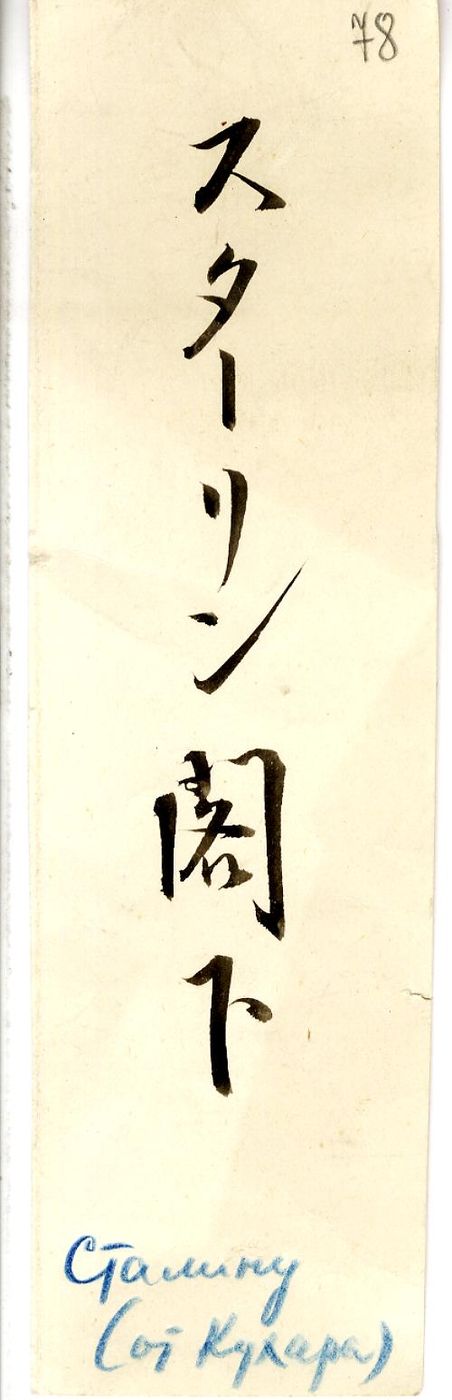 78
スターリン閣下
Сталину
(от Кухара)